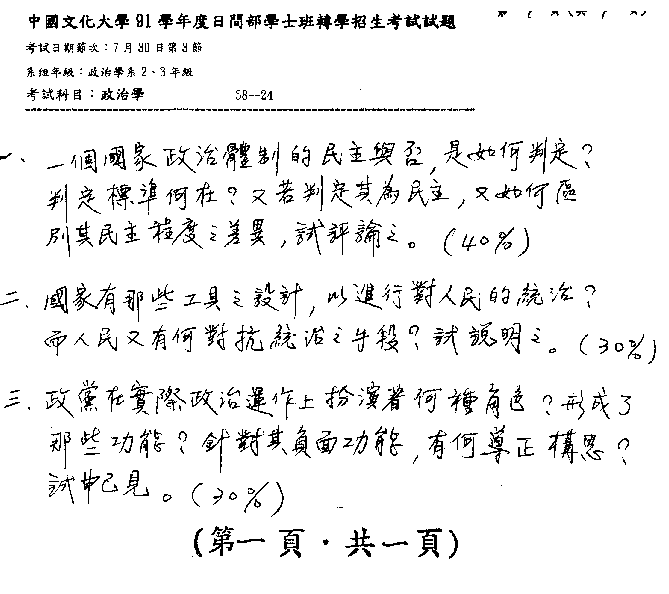 中國文化大學91學年度日間部學士班轉學招生考試試題
考試日期節次：7月30日第3節
系組年級：政治學系2、3年級
考試科目：政治學 58--24
一、一個國家政治體制的民主與否，是如何判定？
判定標準何在？又若判定其為民主，又如何區
別其民主程度之差異，試評論之。(40%)
二、國家有那些工具之設計，以進行對人民的統治？
而人民又有何對抗統治之手段？試說明之。(30%)
三、政黨在實際政治運作上扮演著何種角色？形成了
那些功能？針對其負面功能，有何導正構思？
試申己見。(30%)
(第一頁·共一頁)